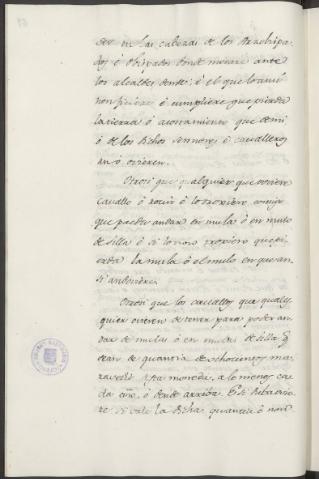 der en las cabezas de los Arzobispa-
dos ó Obispados donde morare ante
los alcaldes dende: é el que lo assi
non ficiere é cumpliere que pierda
la tierra ó acostamiento que de mi
ó de los dichos sennores é cavalleros
an ó ovieren.
Otrosi que qualquier que oviere
cavallo ó rocin é lo troxiere consigo
que pueda andar en mula ó en mulo
de silla é si lo non troxiere que pi-
erda la mula ó el mulo en que an-
si andoviere.
Otrosi que los cavallos que quales-
quier ovieren de tener para poder an-
dar de mulas ó en mulos de silla q
sean de quantia de ochocientos ma-
ravedis á esta moneda, a lo menos, ca-
da uno, ó dende arriba. E si
re si vale la dicha quantia ó non